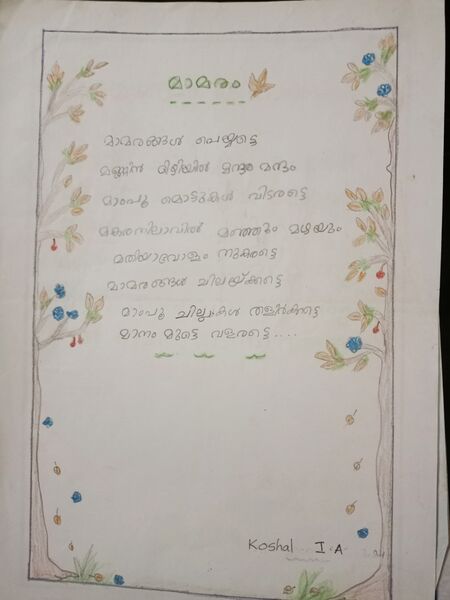 മാമരം
മാമരങ്ങൾ പെയ്യട്ടെ
മണ്ണിൻ മന്ദം
മാംപൂ മൊട്ടുകൾ വിടരട്ടെ
മകരനിലാവിൽ മഞ്ഞും മഴയും
മതിയാവോളം നുകരട്ടെ
മാമരങ്ങൾ ചിലയ്ക്കട്ടെ
മാംപൂ ചില്ലകൾ തളിർക്കട്ടെ
മാനം മുട്ടെ വളരട്ടെ....
Koshal I.A